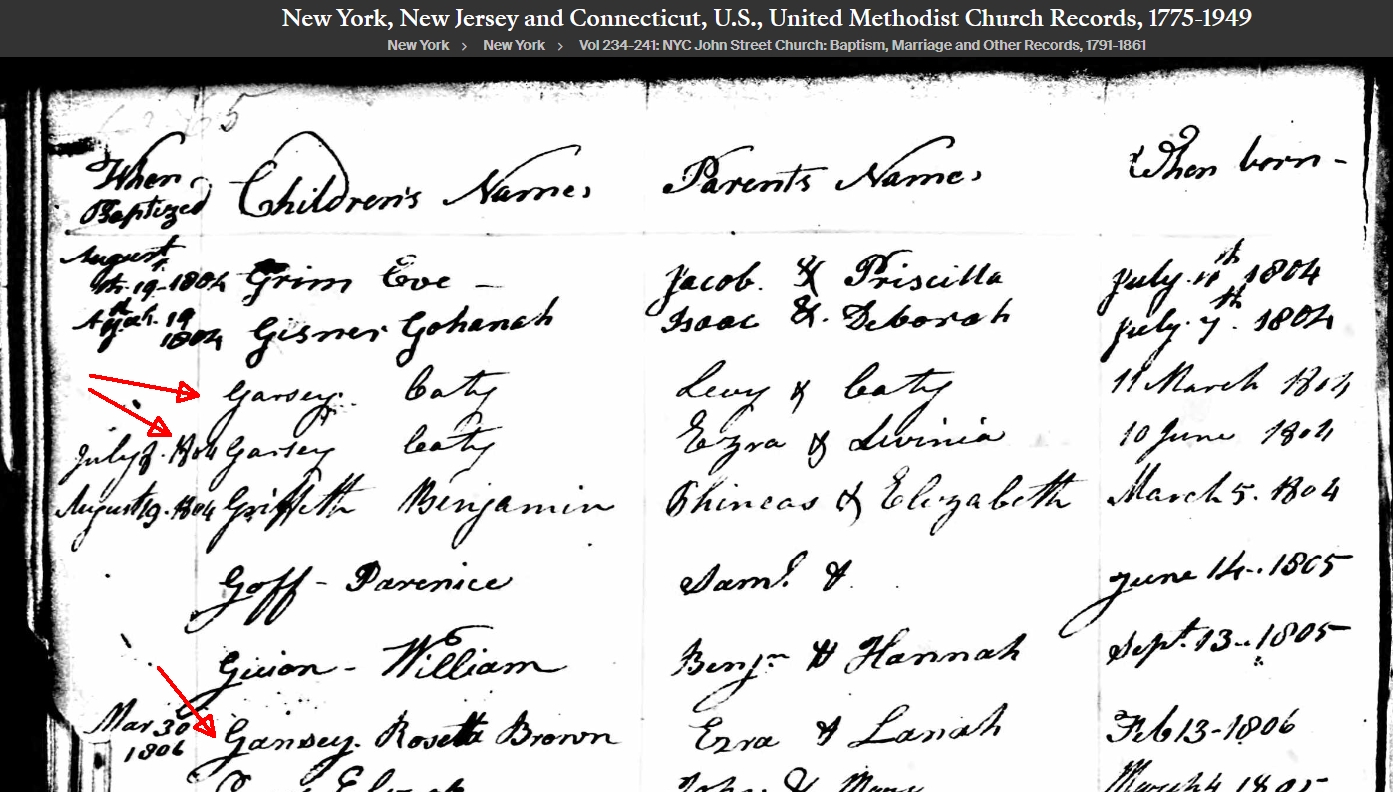 New York, New Jersey and Connecticut, U.S., United Methodist Church Records, 1775-1949
New York > New York > Vol 234-241: NYC John Street Church: Baptism, Marriage and Other Records, 1791-1861
When Baptized Children's Names Parents Names When born -
August 19-1804 Grim Eve - Jacob. & Priscilla July 11th 1804
19th 1804 Gisner Gohanah Isaac &. Deborah July. 7th. 1804
Garsey. Caty Levy & Caty 11 March 1804
July 8. 1804 Garsey Caty Ezra & Livinia 10 June 1804
August 19. 1804 Griffeth Benjamin Phineas & Elizabeth March 5. 1804
Goff - Parenice Saml. & June 14-. 1805
Guion - William Benjn & Hannah Sept. 13-. 1805
Mar 30 1806 Gansey. Rosetta Brown Ezra & Lanah Feb 13-1806
John & Mary March 4 1805